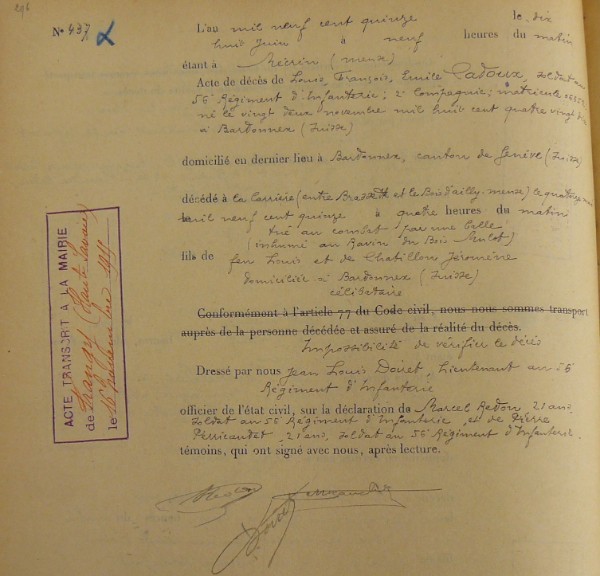 296
N° 437 L'an mil neuf cent quinze le dix
huit Juin à neuf heures du matin
étant à (meuse)
Acte de décès de Louis, François, Emile Cadoux, soldat au
56e Régiment d'Infanterie; 2e Compagnie; matricule
né le vingt deux novembre mil huit cent quatre vingt
à Bardonnex (Suisse)
domicilié en dernier lieu à Bardonnex, canton de Genève (Suisse)
décédé à la Carrière (entre et le Bois d'ailly-meuse) le
mil neuf cent quinze à quatre heures du matin
tué au combat par une balle
(inhumé au Ravin du Bois Mulot)
fils de feu Louis et de Chatillon Jéromine
domiciliée à Bardonnex (Suisse)
célibataire
Conformément à l'article 77 du Code civil, nous nous sommes transport
auprès de la personne décédée et assuré de la réalité du décès.
Impossibilité de vérifier le décès
Dressé par nous Jean Louis Doret, Lieutenant au 56
Régiment d'Infanterie
officier de l'état civil, sur la déclaration de Marcel Redon, 21 ans,
soldat au 56 Régiment d'Infanterie et de Pierre
Perricaudet, 21 ans, soldat au 56 Régiment d'Infanterie.
témoins, qui ont signé avec nous, après lecture.
ACTE TRANSCRIT A LA MAIRIE
de Frangy (Haute-Savoie)
le 16 1919